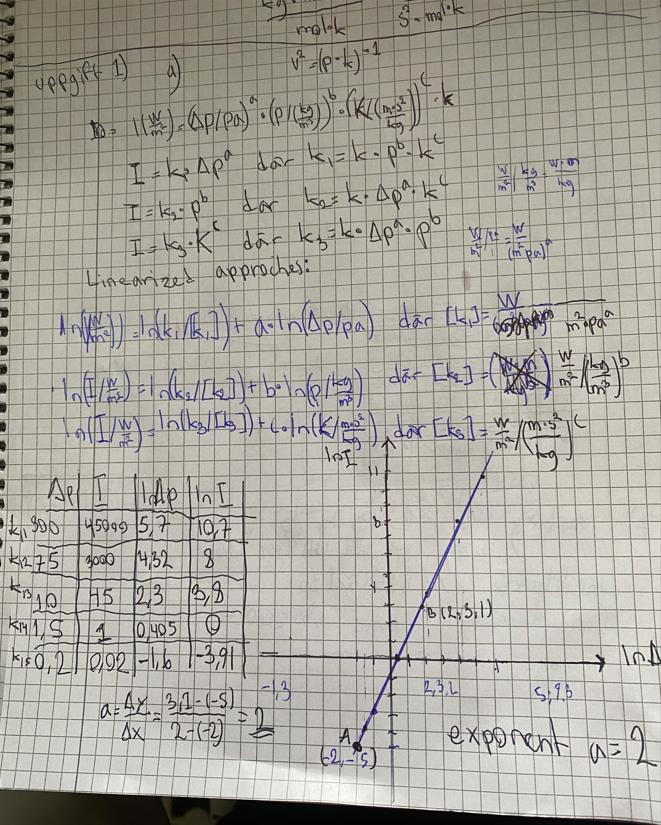 mol·k s²·mol·k
v²=(p·k)⁻¹
uppgift 1) a)
I(W/m²)=(Δp/pa)ᵃ·(p/(kg/m³))ᵇ·(K/(m·s²/kg))ᶜ·k
I=k₁·Δpᵃ där k₁=k·pᵇ·kᶜ
I=k₂·pᵇ där k₂=k·Δpᵃ·kᶜ
I=k₃·Kᶜ där k₃=k·Δpᵃ·pᵇ
W/m²/kg/m³=W·m/kg
W/m²/Pa=W/(m²pa)ᵃ
Linearized approches:
ln(W/m²))=ln(k₁/[k₁])+a·ln(Δp/pa) där [k₁]=W/m²·paᵃ
ln(I/W/m²)=ln(k₂/[k₂])+b·ln(p/kg/m³) där [k₂]=W/m²/(kg/m³)ᵇ
ln(I/W/m²)=ln(k₃/[k₃])+c·ln(K/m·s²/kg) där [k₃]=W/m²/(m·s²/kg)ᶜ
ln I
11
8
4
Δp I lnΔp ln I
k₁₁ 300 45000 5,7 10,7
k₁₂ 75 3000 4,32 8
k₁₃ 10 45 2,3 3,8
k₁₄ 1,5 1 0,405 0
k₁₅ 0,2 0,02 -1,6 -3,91
B(2,3,1)
lnΔ
-1,3 2,3,2
a=Δx/Δx=3,1-(-5)/2-(-2)=2
A
(-2,-5)
exponent a=2